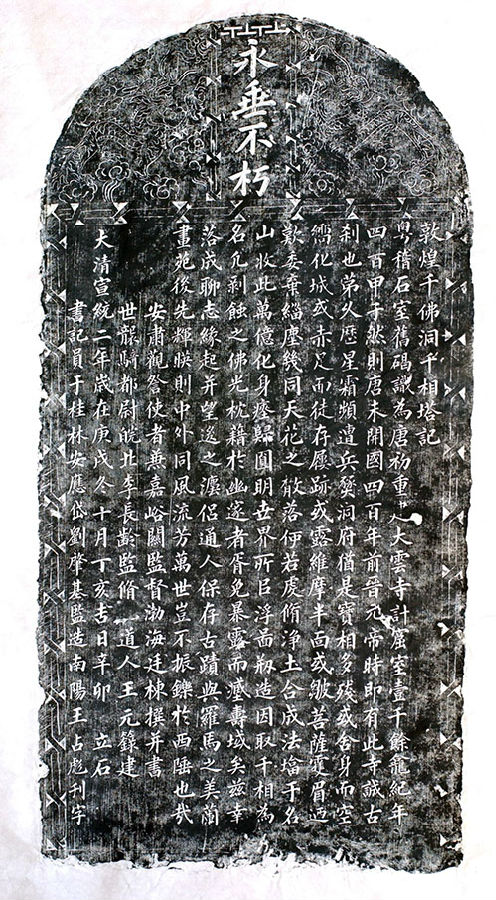 永垂不朽
敦煌千佛洞千相塔記
粵稽石室舊碼識為唐初重建大雲寺計窟室壹千餘龕紀年
四百甲子然則唐未開國四百年前晉元帝時即有此寺誠古
剎也第久歷星霜頻遭兵燹洞府猶是寶相多殘或舍身而空
化城或赤足而徒存屨跡或露維摩半面或皺菩薩雙眉過
歎委棄緇塵幾同天花之散落便若處脩淨土合成法墖于名
山收此萬億化身瘞歸圓明世界所㠯浮啚剏造因取千相為
名凢剝蝕之佛光枕藉於幽邃者胥免暴露而壽域矣茲幸
落成聊志緣起并望遊之侶通人保存古蹟與羅馬之美蘭
畫苑後先輝暎則中外同風流芳萬世豈不振鑠於西陲也哉
安肅觀詧使者兼嘉峪關監督渤海廷棟撰并書
世襲騎都尉皖北李長齡監脩 道人王元籙建
大清宣統二年歲在庚戌冬十月丁亥吉日辛卯 立石
書記員于桂林安應岱劉肇基監造南陽王占彪刊字